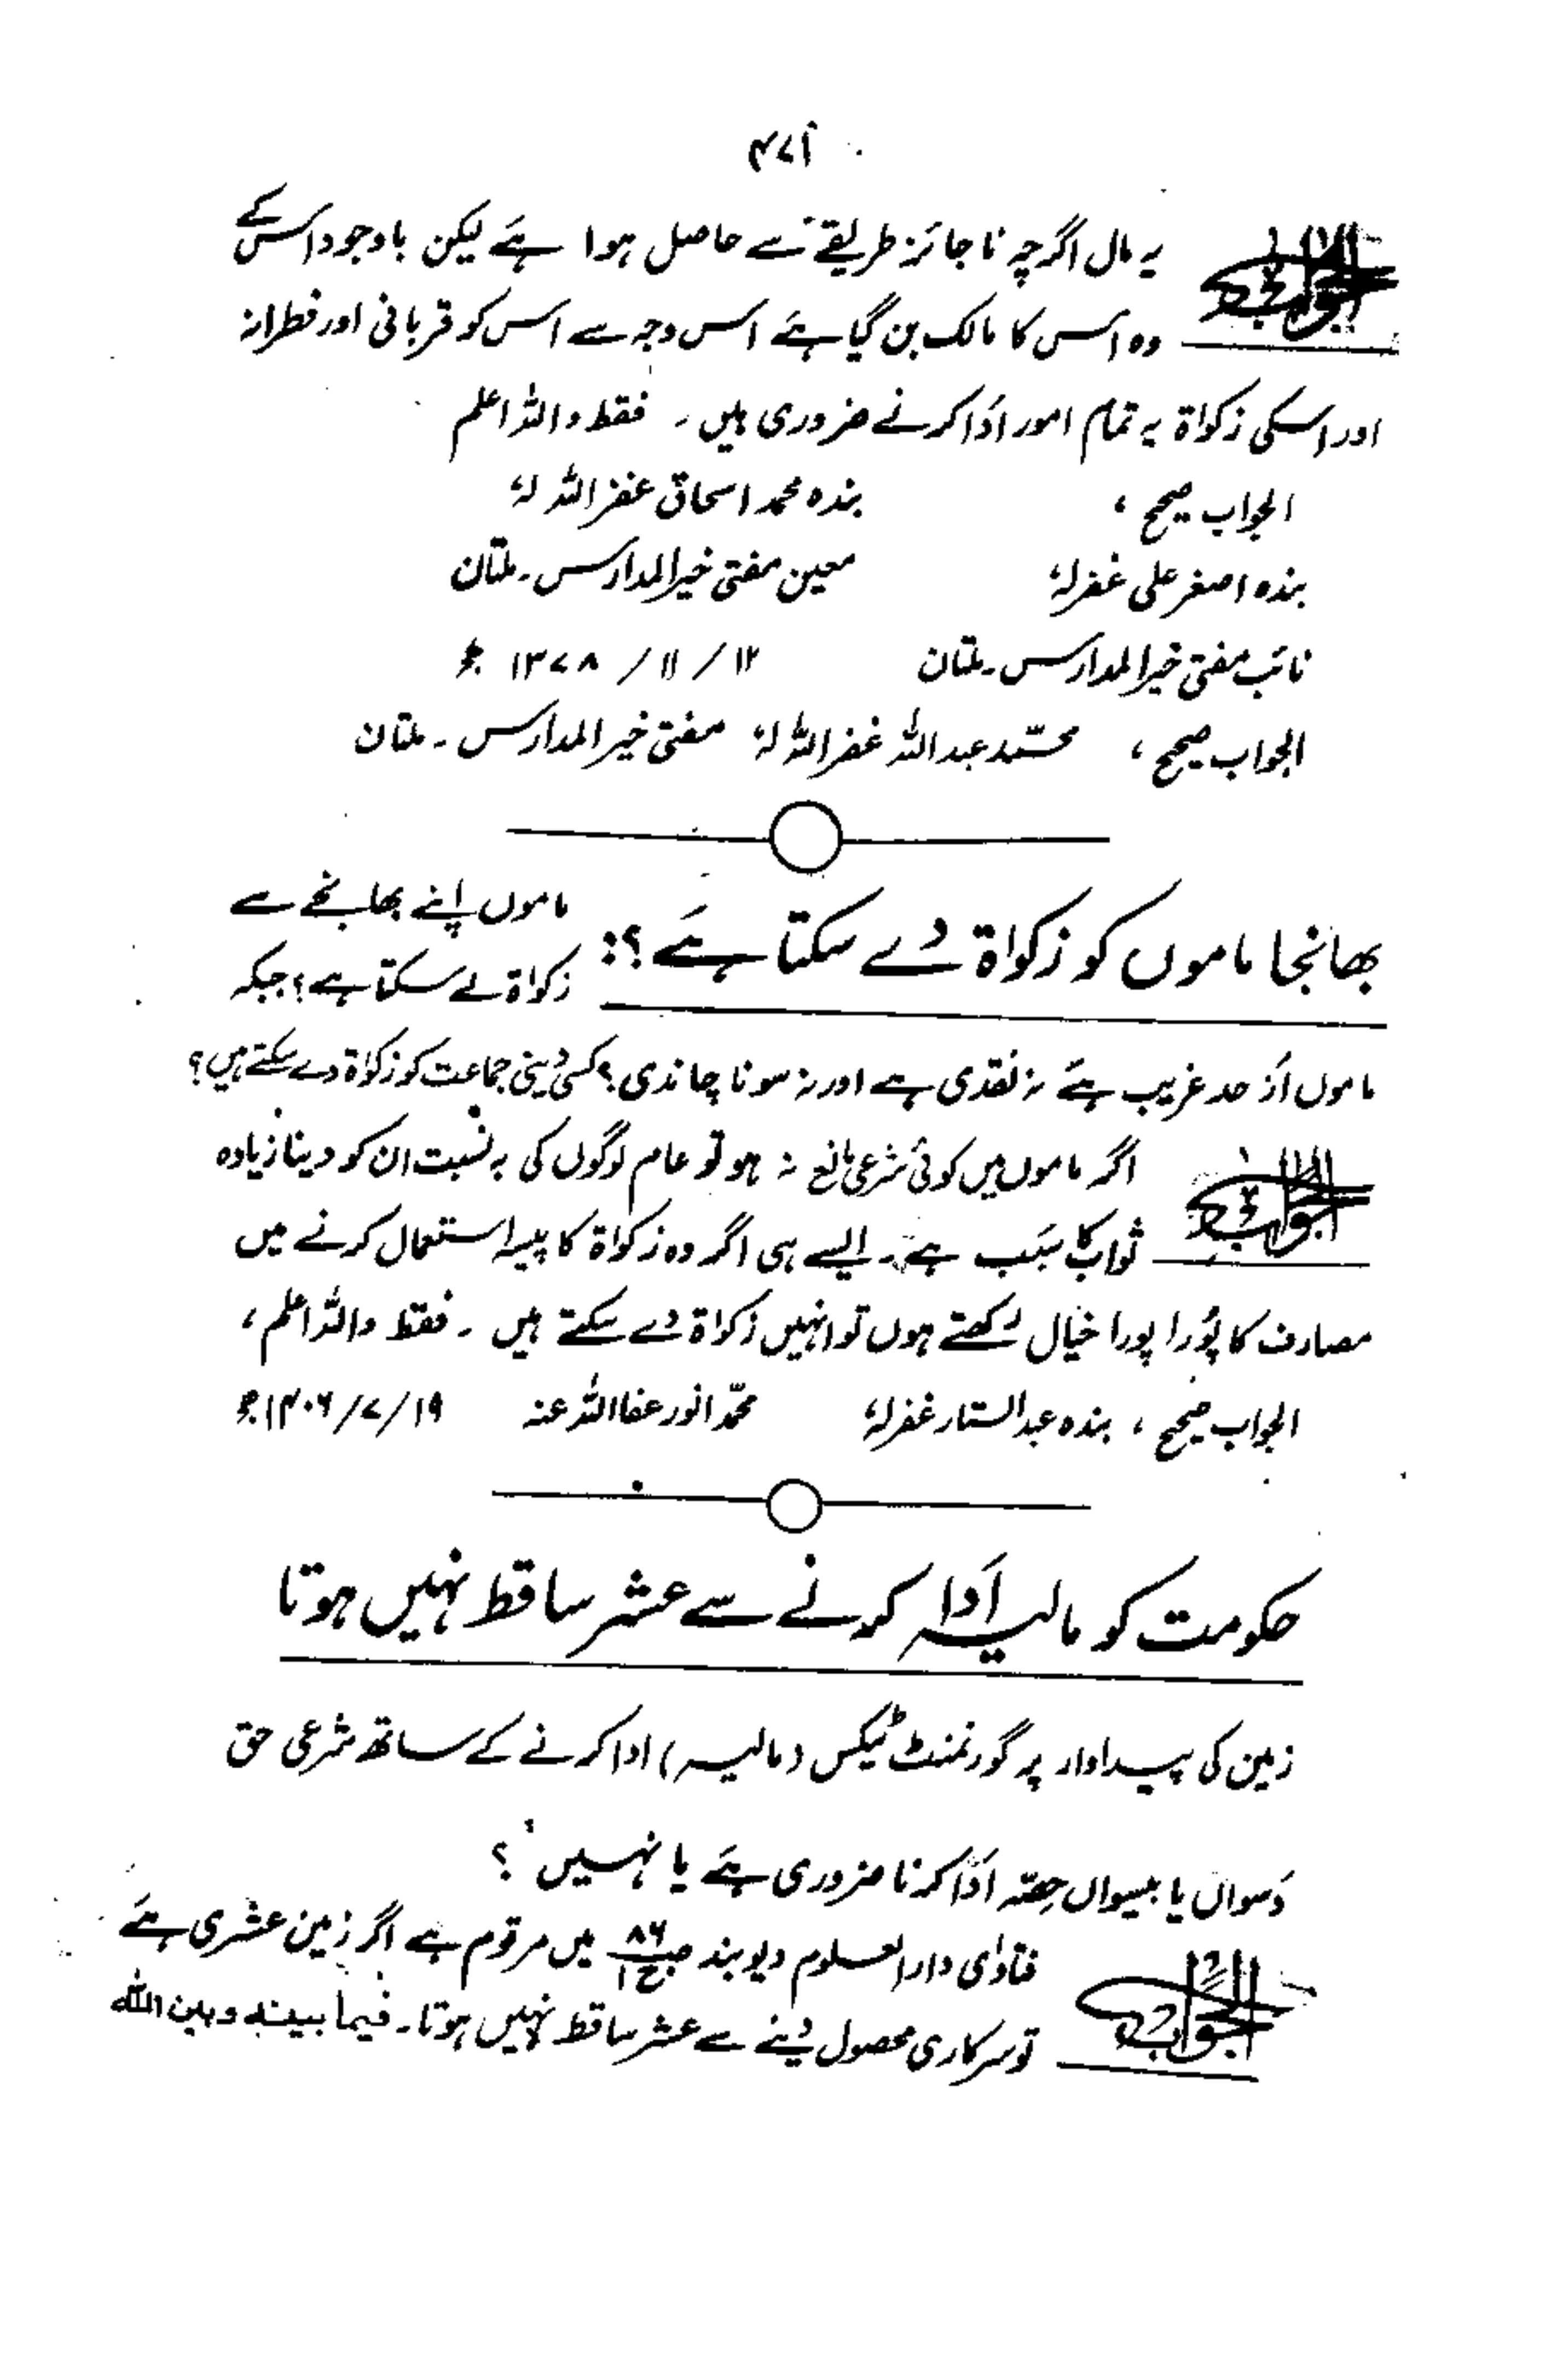 ۴۷۱
الجواب یہ مال اگرچہ ناجائز طریقے سے حاصل ہوا ہے لیکن باوجود اس کے
وہ اس کا مالک بن گیا ہے اس وجہ سے اس کو قربانی اور فطرانہ
اور اسکی زکواۃ یہ تمام امور اَدا کرنے ضروری ہیں۔ فقط واللہ اعلم
الجواب صحیح، بندہ محمد اسحاق غفر اللہ لہٗ
بندہ اصغر علی غفرلہٗ معین مفتی خیر المدارس۔ ملتان
نائب مفتی خیر المدارس۔ ملتان ۱۲ / ۱۱ / ۱۳۷۸ ھ
الجواب صحیح، محمّد عبداللہ غفر اللہ لہٗ مفتی خیر المدارس۔ ملتان
بھانجا ماموں کو زکواۃ دے سکتا ہے؟: ماموں اپنے بھانجے سے
زکواۃ لے سکتا ہے؟ جبکہ
ماموں اَز حد غریب ہے نہ نقدی ہے اور نہ سونا چاندی؟ کسی دینی جماعت کو زکواۃ دے سکتے ہیں؟
الجواب اگر ماموں میں کوئی شرعی مانع نہ ہو تو عام لوگوں کی بہ نسبت ان کو دینا زیادہ
ثواب کا سَبب ہے۔ ایسے ہی اگر وہ زکواۃ کا پیسہ استعمال کرنے میں
مصارف کا پُورا پورا خیال رکھتے ہوں تو انہیں زکواۃ دے سکتے ہیں۔ فقط واللہ اعلم،
الجواب صحیح، بندہ عبدالستار غفرلہٗ محمّد انور عفا اللہ عنہ ۱۹/۷/۱۴۰۶ھ
حکومت کو مالیہ اَدا کرنے سے عشر ساقط نہیں ہوتا
زمین کی پیداوار پر گورنمنٹ ٹیکس (مالیہ) ادا کرنے کے ساتھ شرعی حق
دَسواں یا بیسواں حِصّہ اَدَا کرنا ضروری ہے یا نہیں؟
الجواب فتاوٰی دارالعلوم دیوبند ص۸۶ ج۱ میں مرقوم ہے اگر زمین عشری ہے
تو سرکاری محصول دینے سے عشر ساقط نہیں ہوتا۔ فیما بینہ و بین اللہ